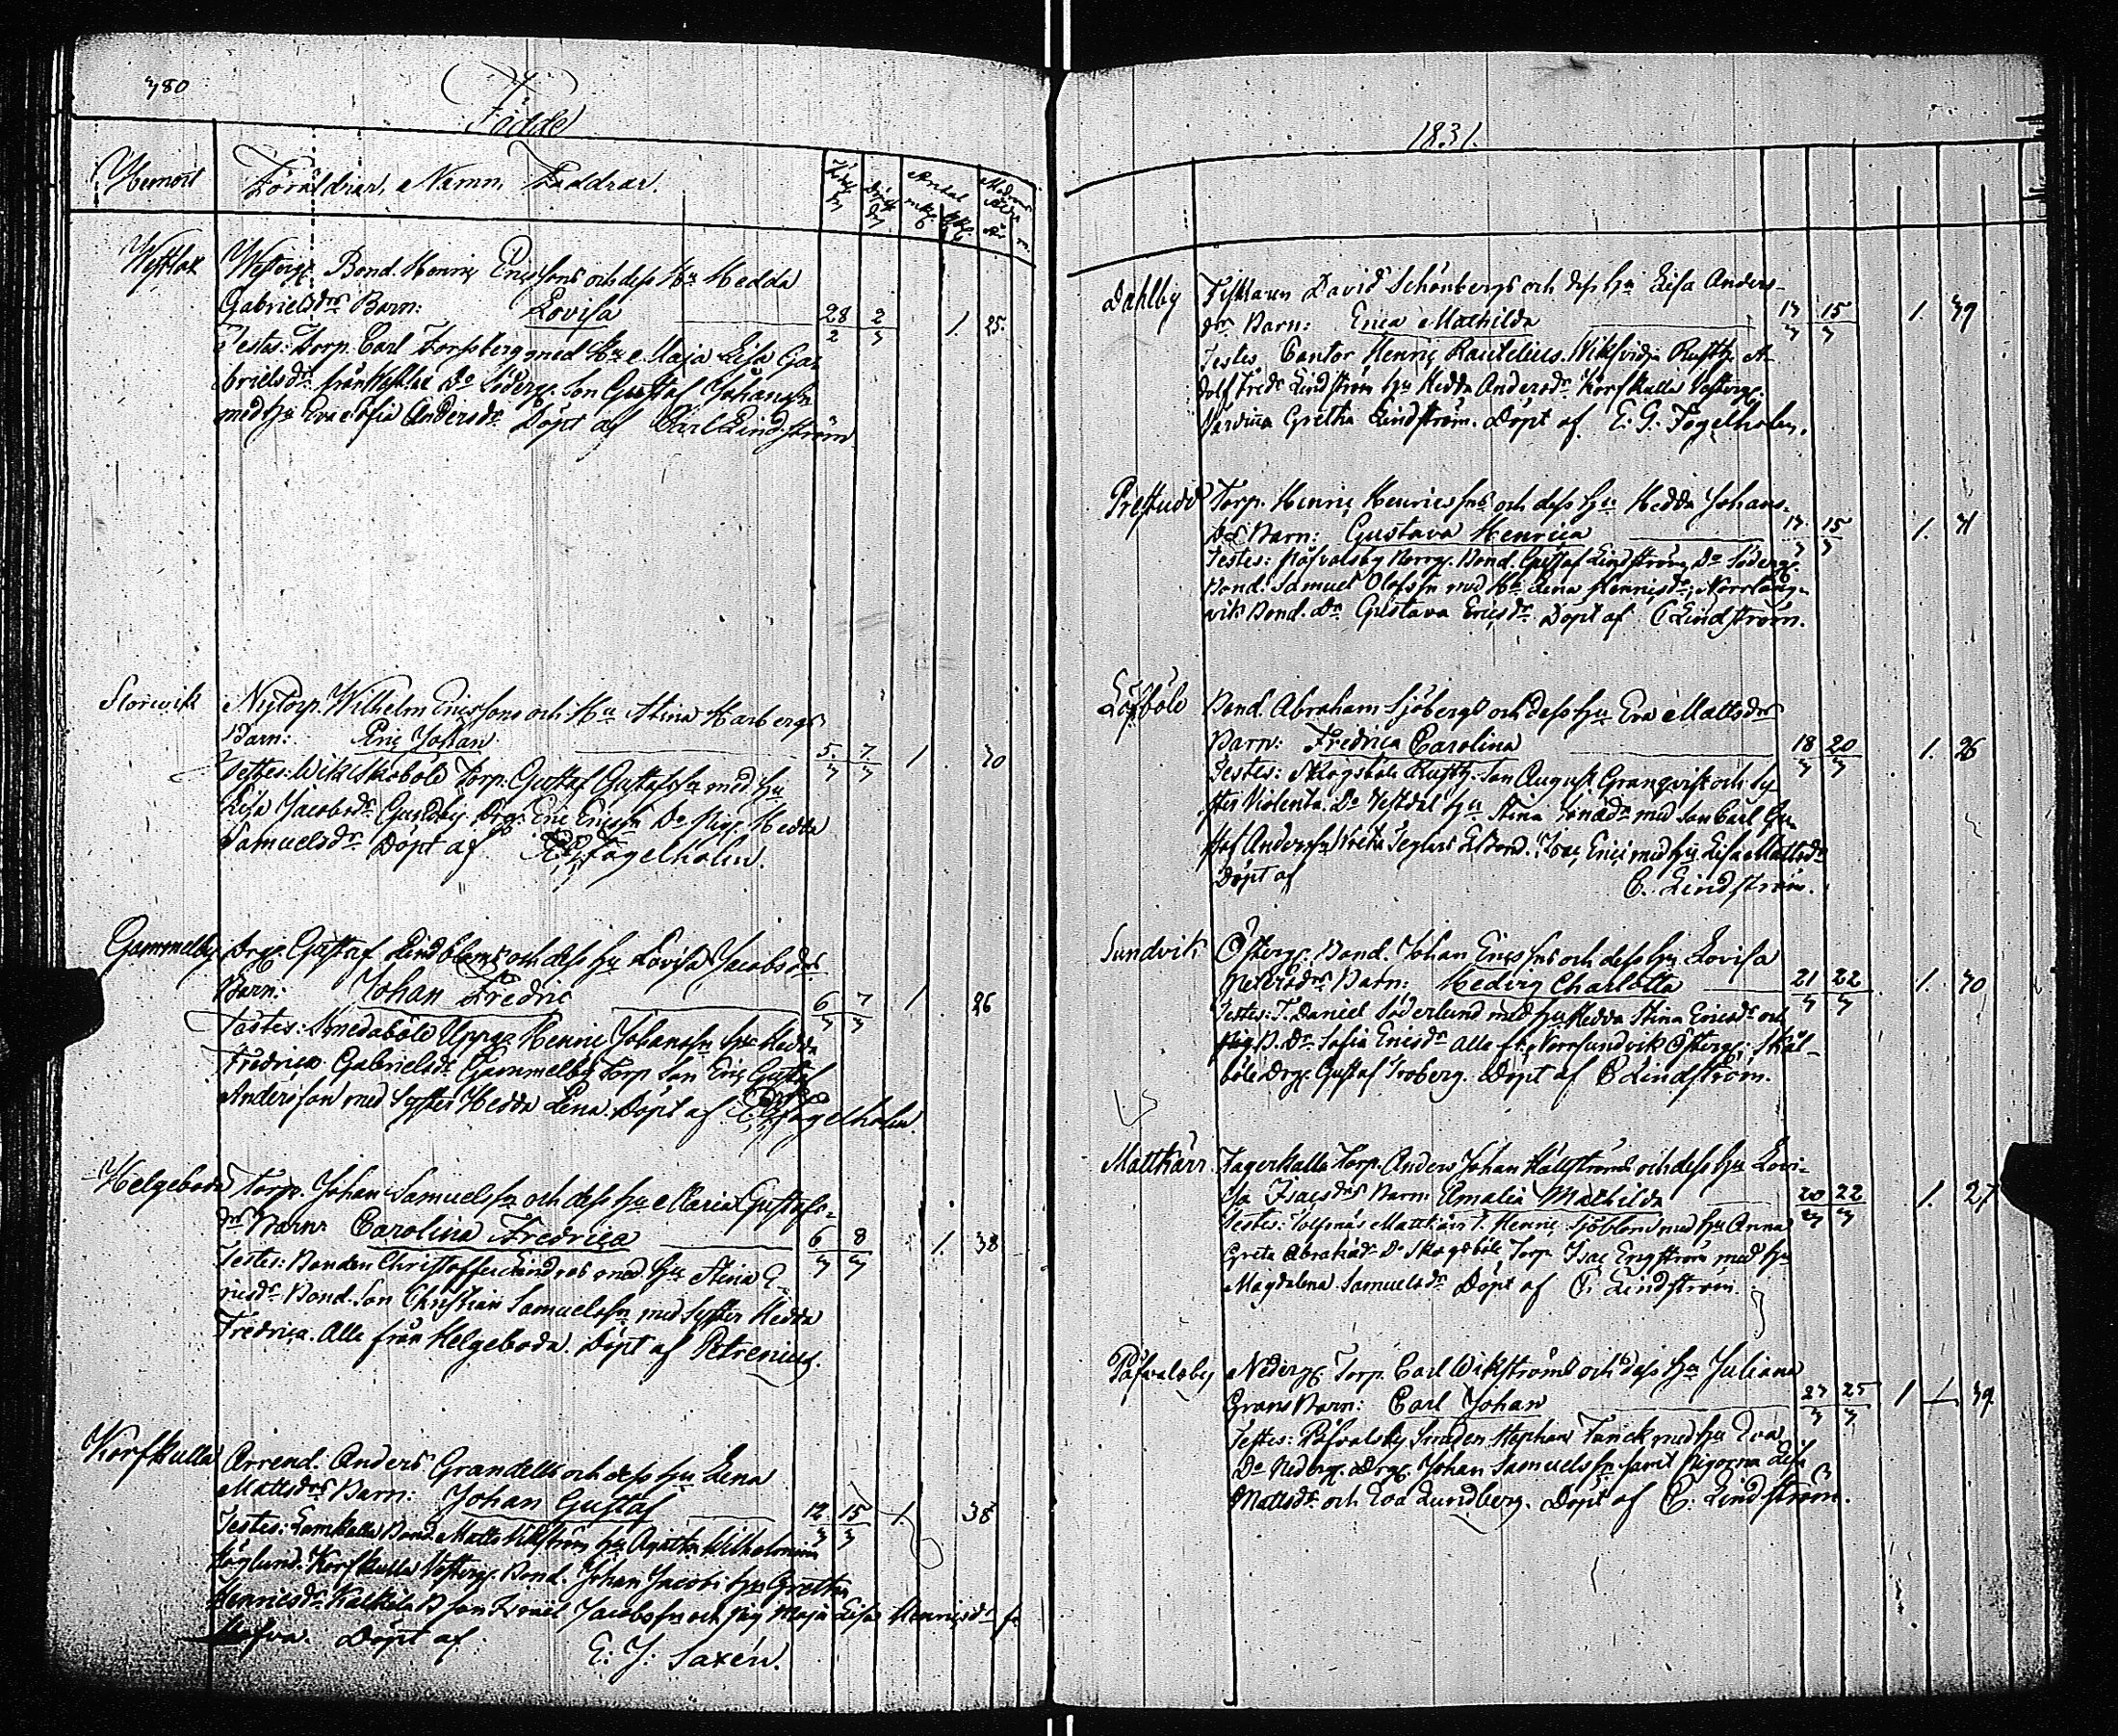 380
Födde
Hemort Föräldrar, Namn, Faddrar.
Westlax Westerg. Bond. Henric Ericssons och dess Hu Hedda
Gabrielsdrs Barn: Lovisa 28/2 2/3 1. 25.
Testes: Torp. Carl Forssberg med Hu Maja Lisa Ga-
brielsdr från Westlax Do Söderg. Son Gustaf Johansn
med hu Eva Sofia Andersdr. Döpt af Carl Lindström
Storwik Nytorp. Wilhelm Ericssons och Hu Stina Karbergs
Barn: Eric Johan 5/3 7/3 1 30
Testes: Wik Skoböle Torp. Gustaf Gustafsson med hu
Lisa Jacobsdr Gundby Drg. Eric Ericsn Do Pig. Hedda
Samuelsdr Döpt af Fogelholm.
Gammelby Drg. Gustaf Lindbloms och dess hu Lovisa Jacobsdrs
Barn: Johan Fredric 6/3 7/3 1 26
Testes: Smedaböle Upprg. Henric Johansn hu Hedda
Fredrica Gabrielsdr Gammelby Torp Son Eric Gustaf
Andersson med Syster Hedda Lena. Döpt af E. G. Fogelholm
Helgeboda Torp. Johan Samuelsn och dess hu Maria Gustafs-
drs Barn Carolina Fredrica 6/3 8/3 1. 38
Testes: Bonden Christoffer Lindros med hu Stina E-
ricsdr Bond. Son Christian Samuelsn med Syster Hedda
Fredrica. Alla från Helgeboda. Döpt af Petrenius.
Korfkulla Arrend. Anders Grandells och dess hu Lena
Mattsdrs Barn: Johan Gustaf 12/3 15/3 1. 38
Testes: Lamkulla Bond. Matts Wikström hu Agatha Wilhelmina
Höglund. Korfkulla Westerg. Bond. Johan Jacobs: hu Gretha
Henricsdr Kalkila B Son Israel Jacobsn och pig Maja Lisa Henricsdr fr
Döpt af E: J: Saxén.
1831.
Dahlby Fiskaren David Schönbergs och dess hu Lisa Anders-
drs Barn: Erica Mathilda 13/3 15/3 1. 39
Testes Cantor Henric Rautelius. Wiksvidja Rusth. A-
dolf Fredr Lindström hu Hedda Andersdr Korfkulla Westerg.
Gretha Lindström. Döpt af E. G. Fogelholm.
Prestudd Torp. Henric Henricsns och dess hu Hedda Johans-
drs Barn: Gustava Henrica 13/3 15/3 1. 41
Testes: Påfvalsby Norrg. Bond. Gustaf Lindström, Do Söderg.
Bond. Samuel Olofsn med Hu Lena Henricsdr, Norrlång-
vik Bond. dr Gustava Ericsdr Döpt af C Lindström.
Löfböle Bond. Abraham Sjöbergs och dess hu Eva Mattsdrs
Barn: Fredrica Carolina 18/3 20/3 1. 26
Testes: Skogsböle Rusth. Son August Granqvist och Sy-
ster Violenta. Do Westdal hu Stina med Son Carl Gu-
staf Andersn Bond. Isac Erics med hu Lisa Mattsdr
Döpt af C. Lindström.
Sundvik Österg. Bond. Johan Ericsns och dess hu Lovisa
Barn: Hedvig Charlotta 21/3 22/3 1. 30
Testes: T. Daniel Söderlund med hu Hedda Stina Ericsdr och
pig B. Dr Sofia Ericsdr alla fr Norrsundvik Österg; Skål-
böle Drg. Gustaf Broberg. Döpt af C Lindström.
Mattkärr Fagerkulla Torp. Anders Johan Källströms och dess hu Lovi-
sa Isacsdrs Barn: Amalia Mathilda 20/3 22/3 1. 27
Testes: Mattkärr T. Henric Sjöblom med hu Anna
Greta Abrahdr Do Skogsböle Torp. Isac Engström med hu
Magdalena Samuelsdr Döpt af C. Lindström.
Påfvalsby Nederg. Torp. Carl Wikströms och dess hu Juliana
Grans Barn: Carl Johan 23/3 25/3 1 39
Testes: Påfvalsby Smeden Stephan Funck med hu Eva
Do Nederg. Drg. Johan Samuelsn samt Pigorna Lisa
Mattsdr och Eva Lundberg. Döpt af C. Lindström.